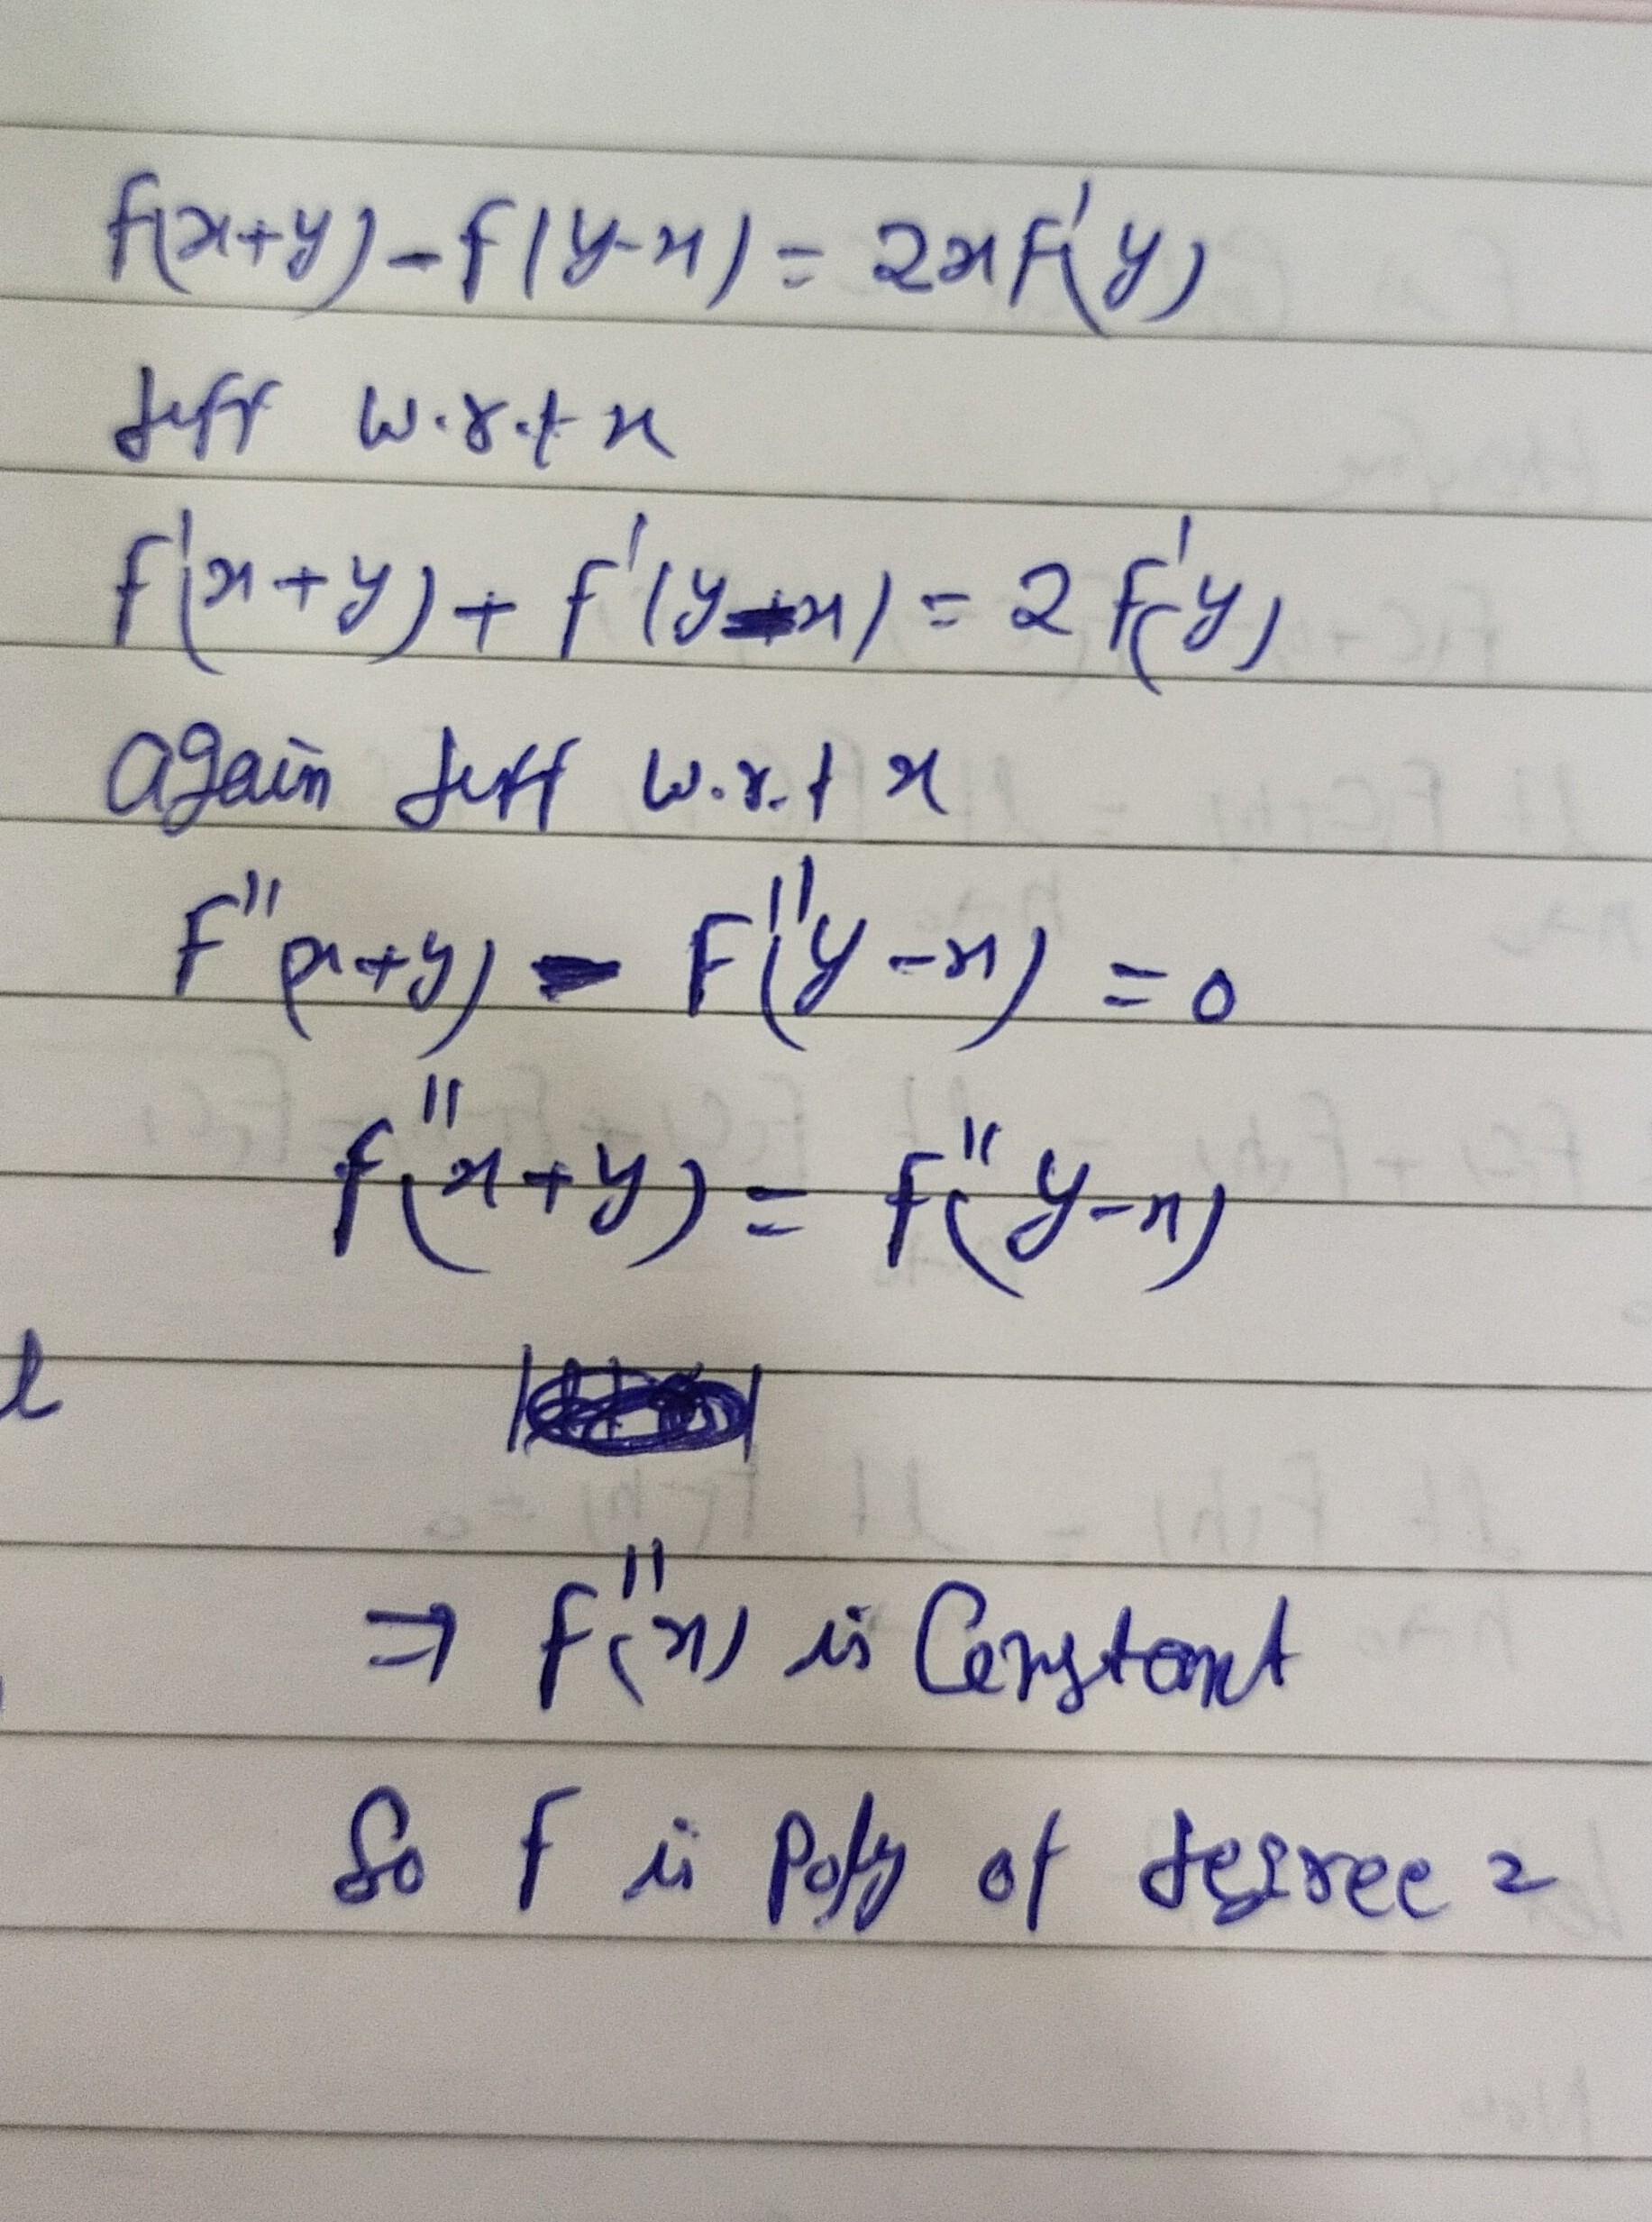 f(x+y) - f(y-x) = 2xf'(y)
diff w.r.t x
f'(x+y) + f'(y-x) = 2f'(y)
again diff w.r.t x
F''(x+y) - F''(y-x) = 0
f''(x+y) = f''(y-x)
l
⇒ f''(x) is Constant
So f is poly of degree 2